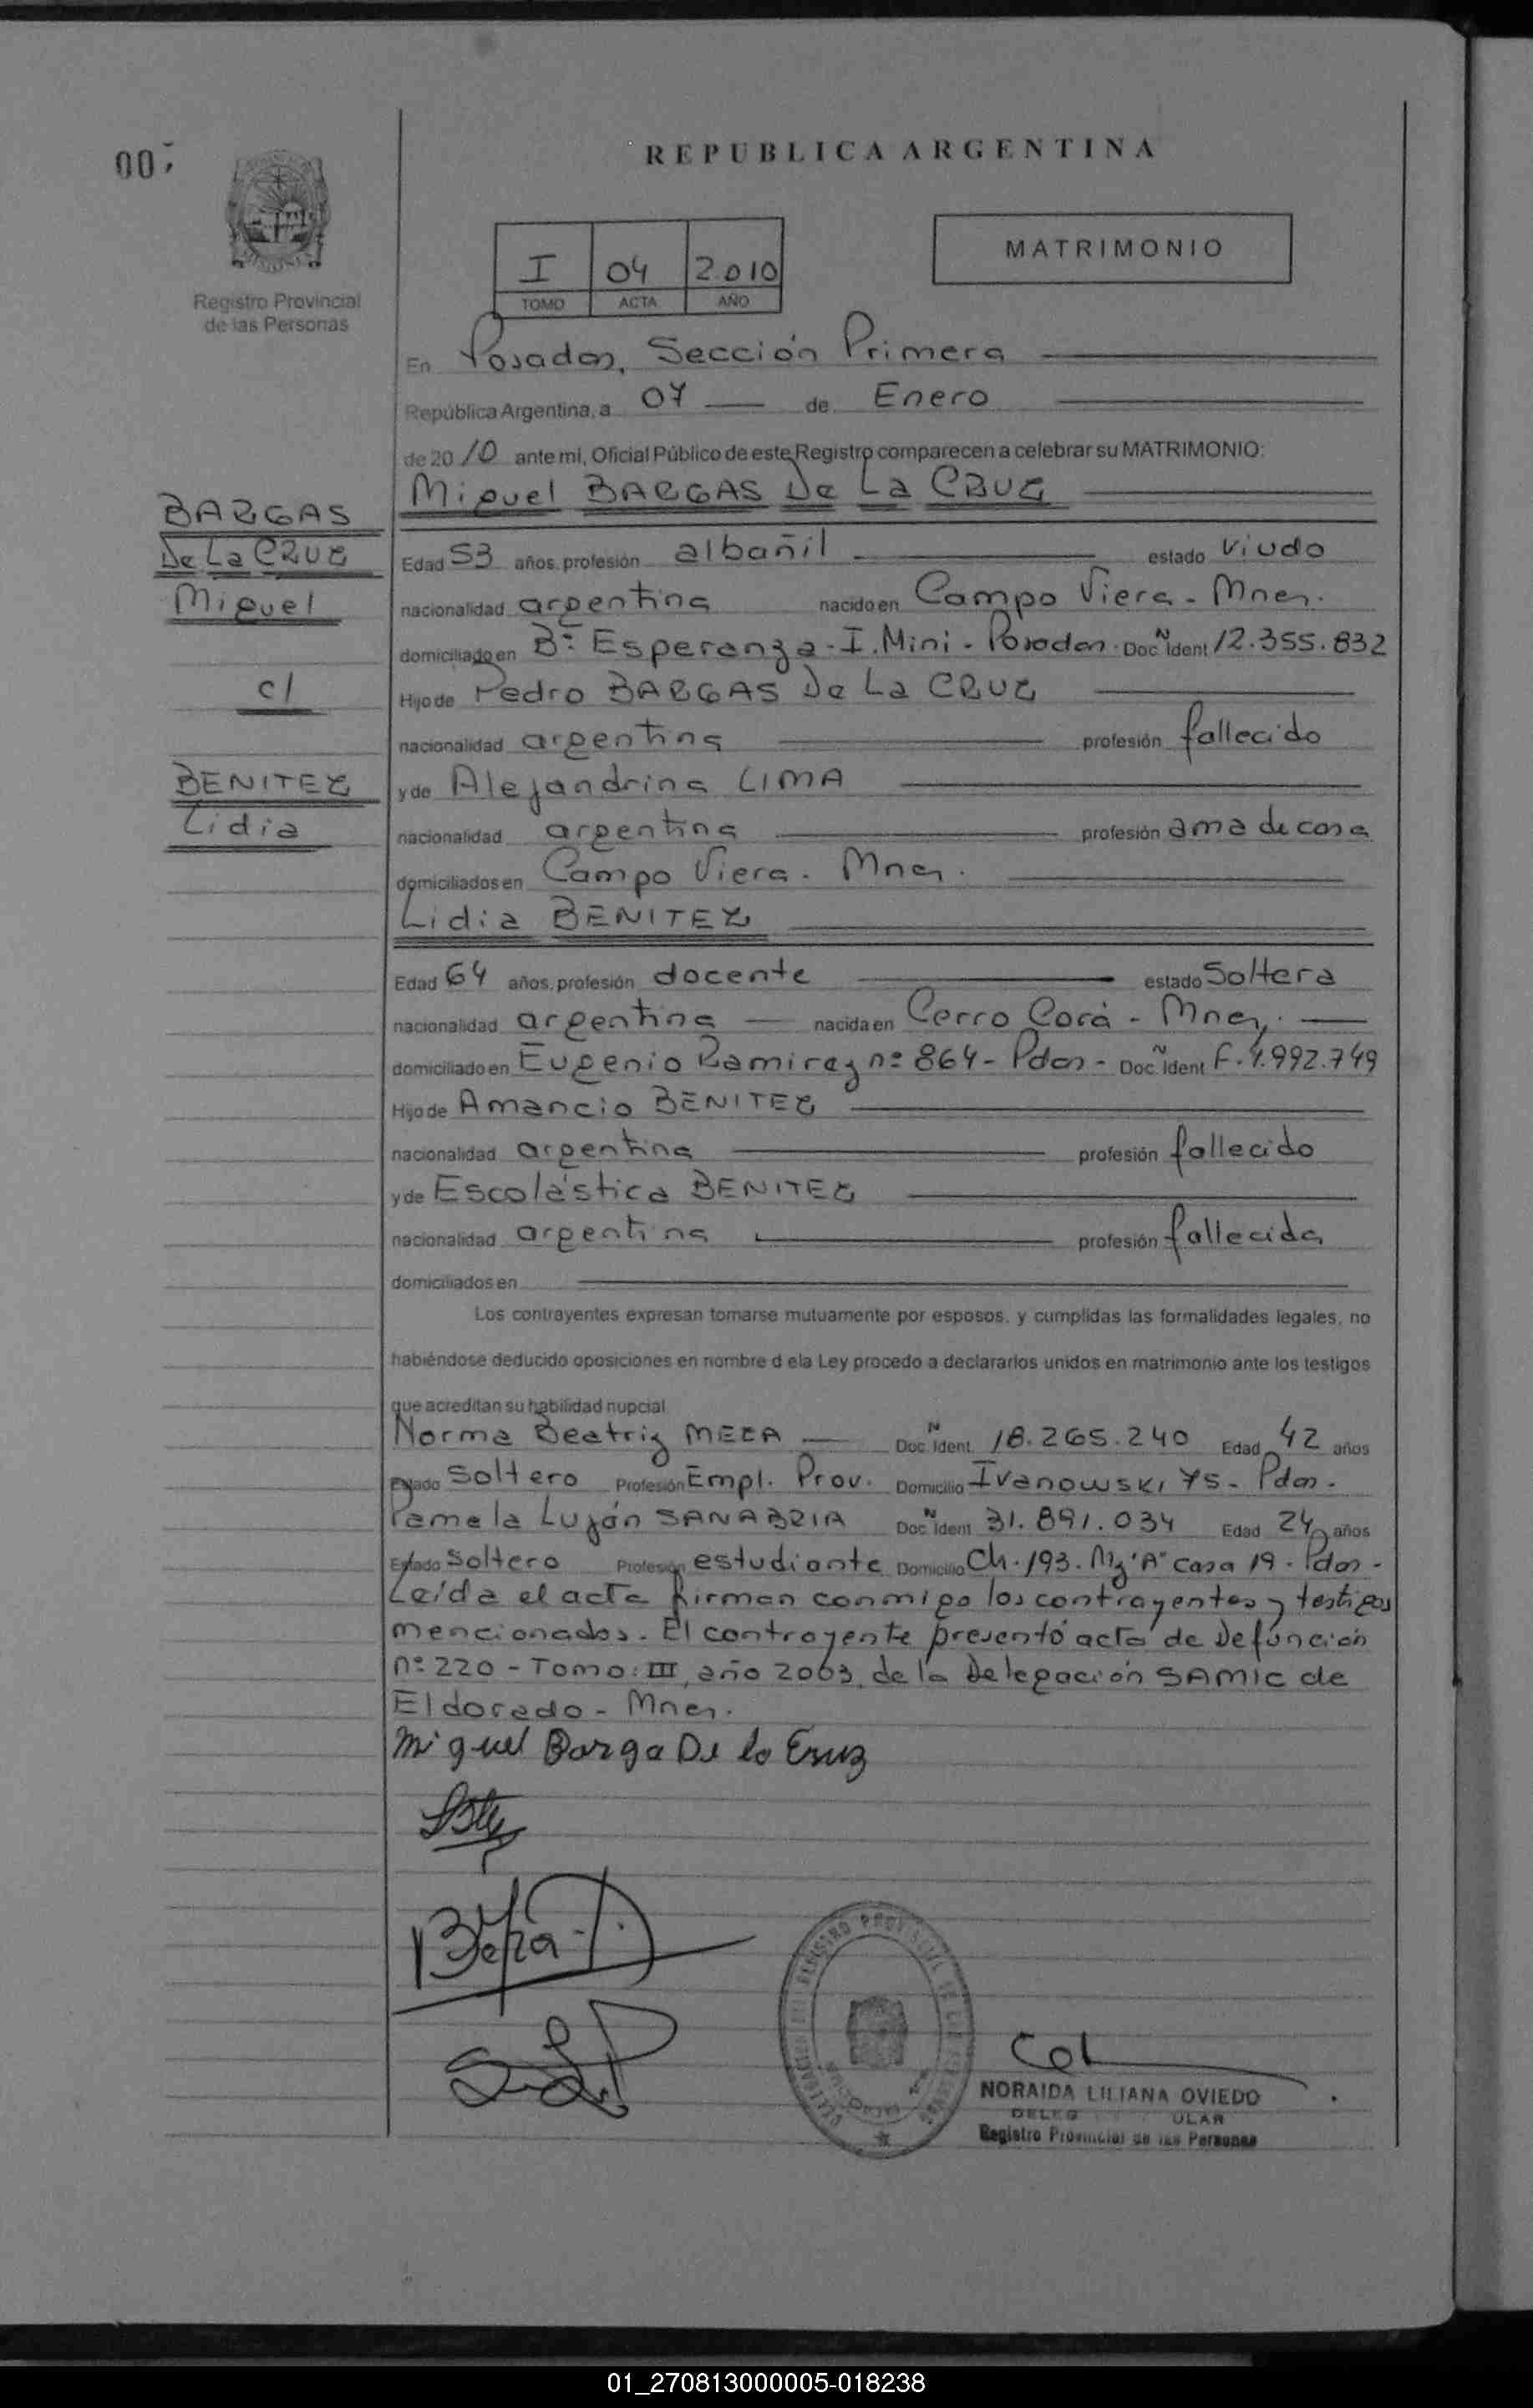 REPUBLICA ARGENTINA
Registro Provincial
de las Personas
MATRIMONIO
I 04 2.010
TOMO ACTA AÑO
En Posadas, Sección Primera
República Argentina, a 07 de Enero
de 2010 ante mi, Oficial Público de este Registro comparecen a celebrar su MATRIMONIO:
Miguel BARGAS De La CRUZ
BARGAS
De La CRUZ
Miguel
c/
BENITEZ
Lidia
Edad 53 años, profesión albañil estado Viudo
nacionalidad argentina nacido en Campo Viera - Mnes.
domiciliado en B° Esperanza - I. Mini - Posadas. Doc. Ident N 12.355.832
Hijo de Pedro BARGAS De La CRUZ
nacionalidad argentina profesión fallecido
y de Alejandrina LIMA
nacionalidad argentina profesión ama de casa
domiciliados en Campo Viera. Mnes.
Lidia BENITEZ
Edad 64 años, profesión docente estado Soltera
nacionalidad argentina nacida en Cerro Corá - Mnes.
domiciliado en Eugenio Ramirez n° 864 - Pdas - Doc. Ident N F. 4.992.749
Hijo de Amancio BENITEZ
nacionalidad argentina profesión fallecido
y de Escolástica BENITEZ
nacionalidad argentina profesión fallecida
domiciliados en
Los contrayentes expresan tomarse mutuamente por esposos, y cumplidas las formalidades legales, no
habiéndose deducido oposiciones en nombre d ela Ley procedo a declararlos unidos en matrimonio ante los testigos
que acreditan su habilidad nupcial
Norma Beatriz MEZA Doc. Ident. N 18.265.240 Edad 42 años
Estado Soltero Profesión Empl. Prov. Domicilio Ivanowski 75 - Pdas.
Pamela Luján SANABRIA Doc. Ident N 31.891.034 Edad 24 años
Estado Soltero Profesión estudiante Domicilio Ch. 193. Mz "A" casa 19 - Pdas -
Leída el acta firman conmigo los contrayentes y testigos
mencionados. El contrayente presentó acta de Defunción
n° 220 - Tomo: III, año 2003, de la Delegación SAMIC de
Eldorado - Mnes.
Miguel Barga De la Cruz
NORAIDA LILIANA OVIEDO
Registro Provincial de las Personas
01_270813000005-018238